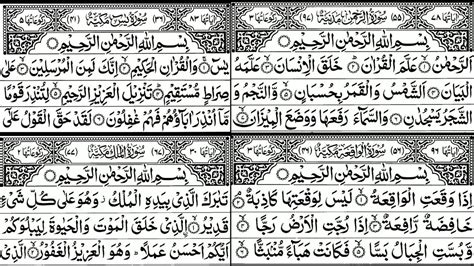 اٰيَاتُهَا ٧٨ (٥٥) سُوْرَةُ الرَّحْمٰنِ مَدَنِيَّةٌ (٩٧) رُكُوْعَاتُهَا ٣
بِسْمِ اللّٰهِ الرَّحْمٰنِ الرَّحِيْمِ
اَلرَّحْمٰنُ ۝١ عَلَّمَ الْقُرْاٰنَ ۝٢ خَلَقَ الْاِنْسَانَ ۝٣ عَلَّمَهُ
الْبَيَانَ ۝٤ اَلشَّمْسُ وَالْقَمَرُ بِحُسْبَانٍ ۝٥ وَّالنَّجْمُ وَ
الشَّجَرُ يَسْجُدٰنِ ۝٦ وَالسَّمَآءَ رَفَعَهَا وَوَضَعَ الْمِيْزَانَ ۝٧
اٰيَاتُهَا ٨٣ (٣٦) سُوْرَةُ يٰسٓ مَكِّيَّةٌ (٤١) رُكُوْعَاتُهَا ٥
بِسْمِ اللّٰهِ الرَّحْمٰنِ الرَّحِيْمِ
يٰسٓ ۝١ وَالْقُرْاٰنِ الْحَكِيْمِ ۝٢ اِنَّكَ لَمِنَ الْمُرْسَلِيْنَ ۝٣ عَلٰى
صِرَاطٍ مُّسْتَقِيْمٍ ۝٤ تَنْزِيْلَ الْعَزِيْزِ الرَّحِيْمِ ۝٥ لِتُنْذِرَ قَوْمًا
مَّآ اُنْذِرَ اٰبَآؤُهُمْ فَهُمْ غٰفِلُوْنَ ۝٦ لَقَدْ حَقَّ الْقَوْلُ عَلٰٓى
اٰيَاتُهَا ٩٦ (٥٦) سُوْرَةُ الْوَاقِعَةِ مَكِّيَّةٌ (٤٦) رُكُوْعَاتُهَا ٣
بِسْمِ اللّٰهِ الرَّحْمٰنِ الرَّحِيْمِ
اِذَا وَقَعَتِ الْوَاقِعَةُ ۝١ لَيْسَ لِوَقْعَتِهَا كَاذِبَةٌ ۝٢
خَافِضَةٌ رَّافِعَةٌ ۝٣ اِذَا رُجَّتِ الْاَرْضُ رَجًّا ۝٤
وَّبُسَّتِ الْجِبَالُ بَسًّا ۝٥ فَكَانَتْ هَبَآءً مُّنْۢبَثًّا ۝٦
اٰيَاتُهَا ٣٠ (٦٧) سُوْرَةُ الْمُلْكِ مَكِّيَّةٌ (٧٧) رُكُوْعَاتُهَا ٢
بِسْمِ اللّٰهِ الرَّحْمٰنِ الرَّحِيْمِ
تَبٰرَكَ الَّذِيْ بِيَدِهِ الْمُلْكُ وَهُوَ عَلٰى كُلِّ شَيْءٍ
قَدِيْرٌ ۝١ اۨلَّذِيْ خَلَقَ الْمَوْتَ وَالْحَيٰوةَ لِيَبْلُوَكُمْ
اَيُّكُمْ اَحْسَنُ عَمَلًا وَهُوَ الْعَزِيْزُ الْغَفُوْرُ ۝٢ الَّذِيْ